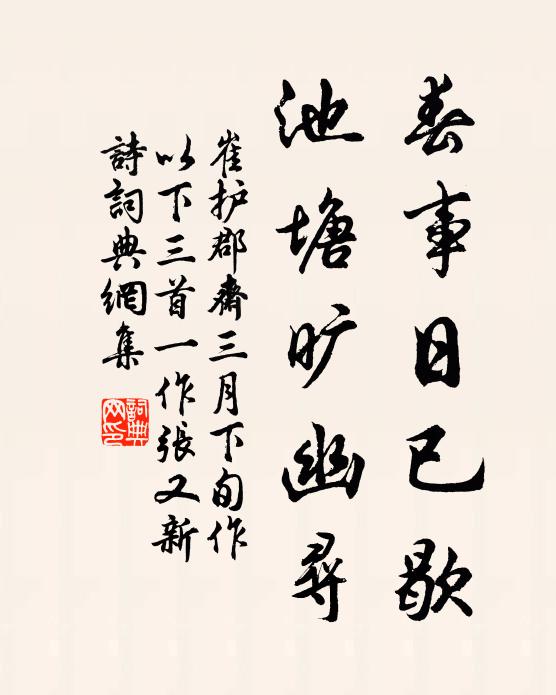 春事日已歇
池塘旷幽寻
崔护郡齋三月下旬作
以下三首一作張又新
詩詞典網集
詞典網印